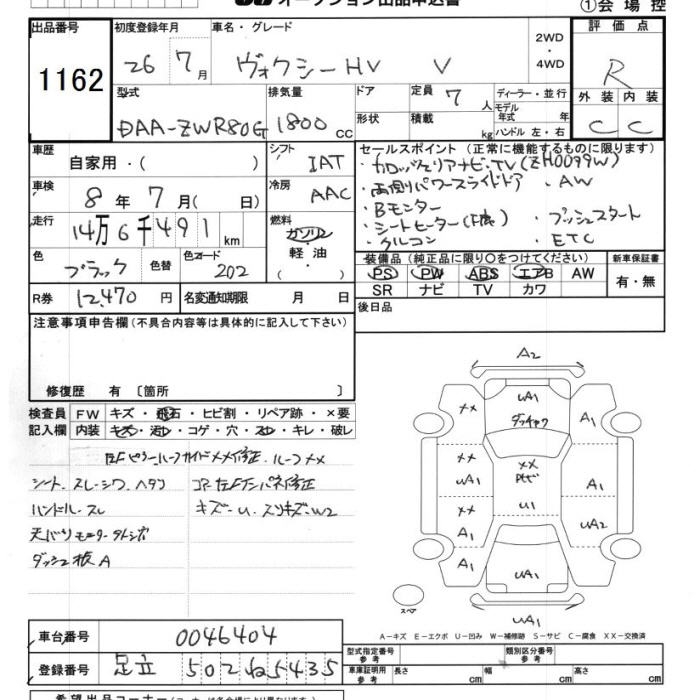 オークション出品申込書
①会場控
出品番号 1162
初度登録年月 26 7月
車名・グレード ヴォクシーHV V
2WD・4WD
評価点 R
外装 内装
C C
型式 DAA-ZWR80G
排気量 1800 CC
ドア 形状
定員 7人
積載 kg
ディーラー・並行
モデル年式 年
ハンドル 左・右
車歴 自家用・( )
シフト IAT
セールスポイント (正常に機能するものに限ります)
・カロッツェリアナビ・TV(ZH0099W)
・両側パワースライドドア ・AW
・Bモニター
・シートヒーター(F席) ・プッシュスタート
・クルコン ・ETC
車検 8年7月( 日)
冷房 AAC
走行 14万6千491km
燃料 ガソリン・軽油・( )
色 ブラック 色替
色コード 202
装備品 (純正品に限り○をつけてください)
PS PW ABS エアB AW
SR ナビ TV カワ
新車保証書 有・無
R券 12,470円
名変通知期限 月 日
後日品
注意事項申告欄 (不具合内容等は具体的に記入して下さい)
修復歴 有 〔箇所 〕
検査員記入欄
FW キズ・飛石・ヒビ割・リペア跡・×要
内装 キズ・汚レ・コゲ・穴・スレ・キレ・破レ
シート、スレ・シワ、ヘタリ
ハンドル・スレ
キズ・U、スリキズ・W2
A2
UA1
XX
A1
XX
UA1
XX
A1
A1
U1
A1
UA2
A1
UA1
UA1
スペア
A－キズ E－エクボ U－凹み W－補修跡 S－サビ C－腐食 XX－交換済
車台番号 0046404
登録番号 足立 502ね5435
型式指定番号 参考
類別区分番号 参考
車庫証明用 参考 長さ cm 幅 cm 高さ cm
希望出品コーナー